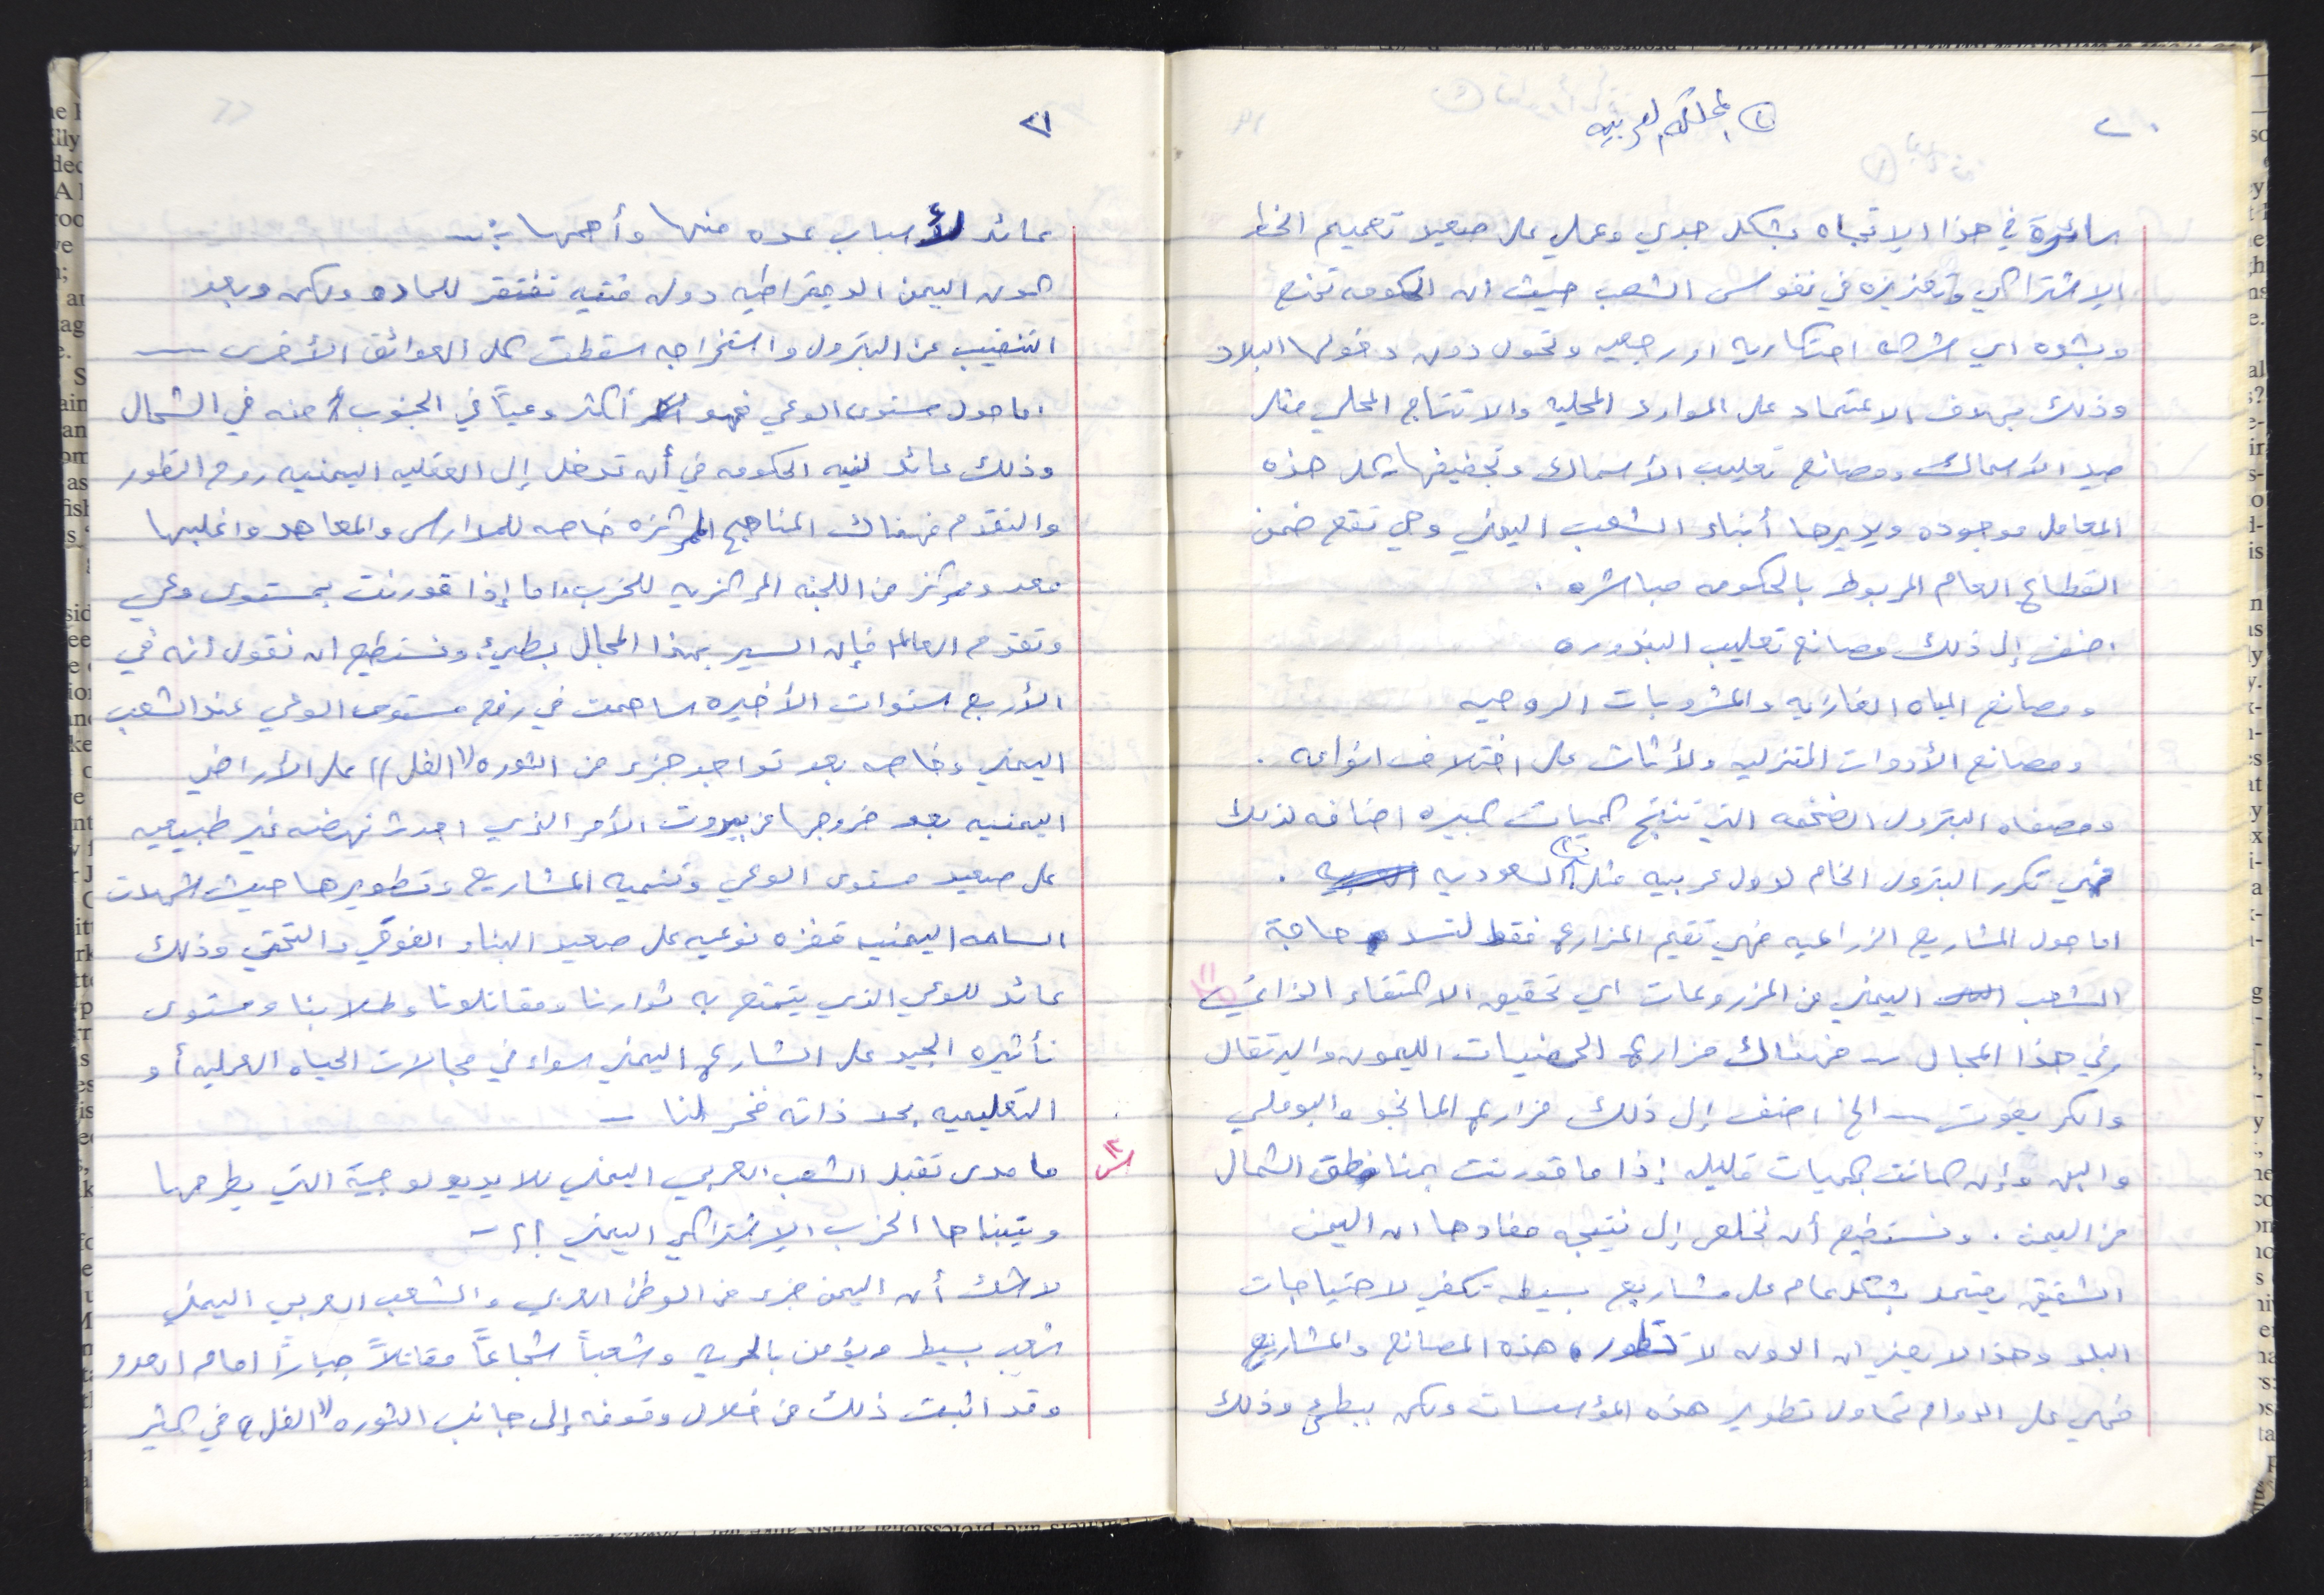 ٢٠
(١) المملكه العربيه
سائرة في هذا الاتجاه بشكل جدي وعملي على صعيد تعميم الخط
الاشتراكي وتعزيزه في نفوس الشعب حيث ان الحكومه تمنع
وبشده اي شركه احتكاريه او رجعيه وتحول دون دخولها البلاد
وذلك بهدف الاعتماد على الموارد المحليه والانتاج المحلي مثل
صيد الأسماك ومصانع تعليب الأسماك وتجفيفها، كل هذه
المعامل موجوده ويديرها أبناء الشعب اليمني وهي تقع ضمن
القطاع العام المربوط بالحكومه مباشره .
اضف إلى ذلك مصانع تعليب البندوره
ومصانع المياه الغازيه والمشروبات الروحيه
ومصانع الأدوات المنزليه ولأثاث على اختلاف انواعه .
ومصفاه البترول الضخمه التي تنتج كميات كبيره اضافه لذلك
فهي تكرر البترول الخام لدول عربيه مثل (١) السعوديه .
اما حول المشاريع الزراعيه فهي تقيم المزارع فقط لتسد حاجة
الشعب اليمني من المزروعات اي تحقيق الاكتفاء الذاتي
في هذا المجال - فهناك مزارع الحمضيات الليمون والبرتقال
والكريفوت - الخ اضف إلى ذلك مزارع المانجو والبوملي
والبن وإن كانت بكميات قليله إذا ما قورنت بمناطق الشمال
من اليمن . ونستطيع أن نخلص إلى نتيجه مفادها ان اليمن
الشقيق يعتمد بشكل عام على مشاريع بسيطه تكفي لاحتياجات
البلد وهذا لا يعني ان الدوله لا تطور هذه المصانع والمشاريع
فهي على الدوام تحاول تطوير هذه المؤسسات ولكن ببطئ وذلك
٢١
عائد لأسباب عده منها وأهمها :-
كون اليمن الديمقراطيه دوله فتيه تفتقر للماده ولكن وبعد
التنقيب عن البترول واستخراجه سقطت كل العوائق الأخرى -
اما حول مستوى الوعي فهو أكثر وعياً في الجنوب منه في الشمال
وذلك عائد لنيه الحكومه في أن تدخل إلى العقليه اليمنيه روح التطور
والتقدم فهناك المناهج المركزه خاصه للمدارس والمعاهد واغلبها
معد ومركز من اللجنه المركزيه للحزب، اما إذا قورنت بمستوى وعي
وتقدم العالم فإن السير بهذا المجال بطيئ، ونستطيع ان نقول أنه في
الأربع سنوات الأخيره ساهمت في رفع مستوى الوعي عند الشعب
اليمني وخاصه بعد تواجد جزء من الثوره "الفل" على الأراضي
اليمنيه بعد خروجها من بيروت الأمر الذي احدث نهضه غير طبيعيه
على صعيد مستوى الوعي وتنميه المشاريع وتطويرها حيث شهدت
الساحه اليمنيه قفزه نوعيه على صعيد البناء الفوقي والتحتي وذلك
عائد للوعي الذي يتمتع به ثوارنا ومقاتلونا وطلابنا ومستوى
تأثيره الجيد على الشارع اليمني سواء في مجالات الحياه العمليه أو
التعليميه بحد ذاته فخر لنا -
س١٢ ما مدى تقبل الشعب العربي اليمني للايديولوجية التي يطرحها
ويتبناها الحزب الاشتراكي اليمني ؟؟ -
لا شك أن اليمن جزء من الوطن العربي والشعب العربي اليمني
شعب بسيط ويؤمن بالحريه وشعباً شجاعاً مقاتلاً جباراً امام العدو
وقد اثبت ذلك من خلال وقوفه إلى جانب الثوره "الفل" في كثير